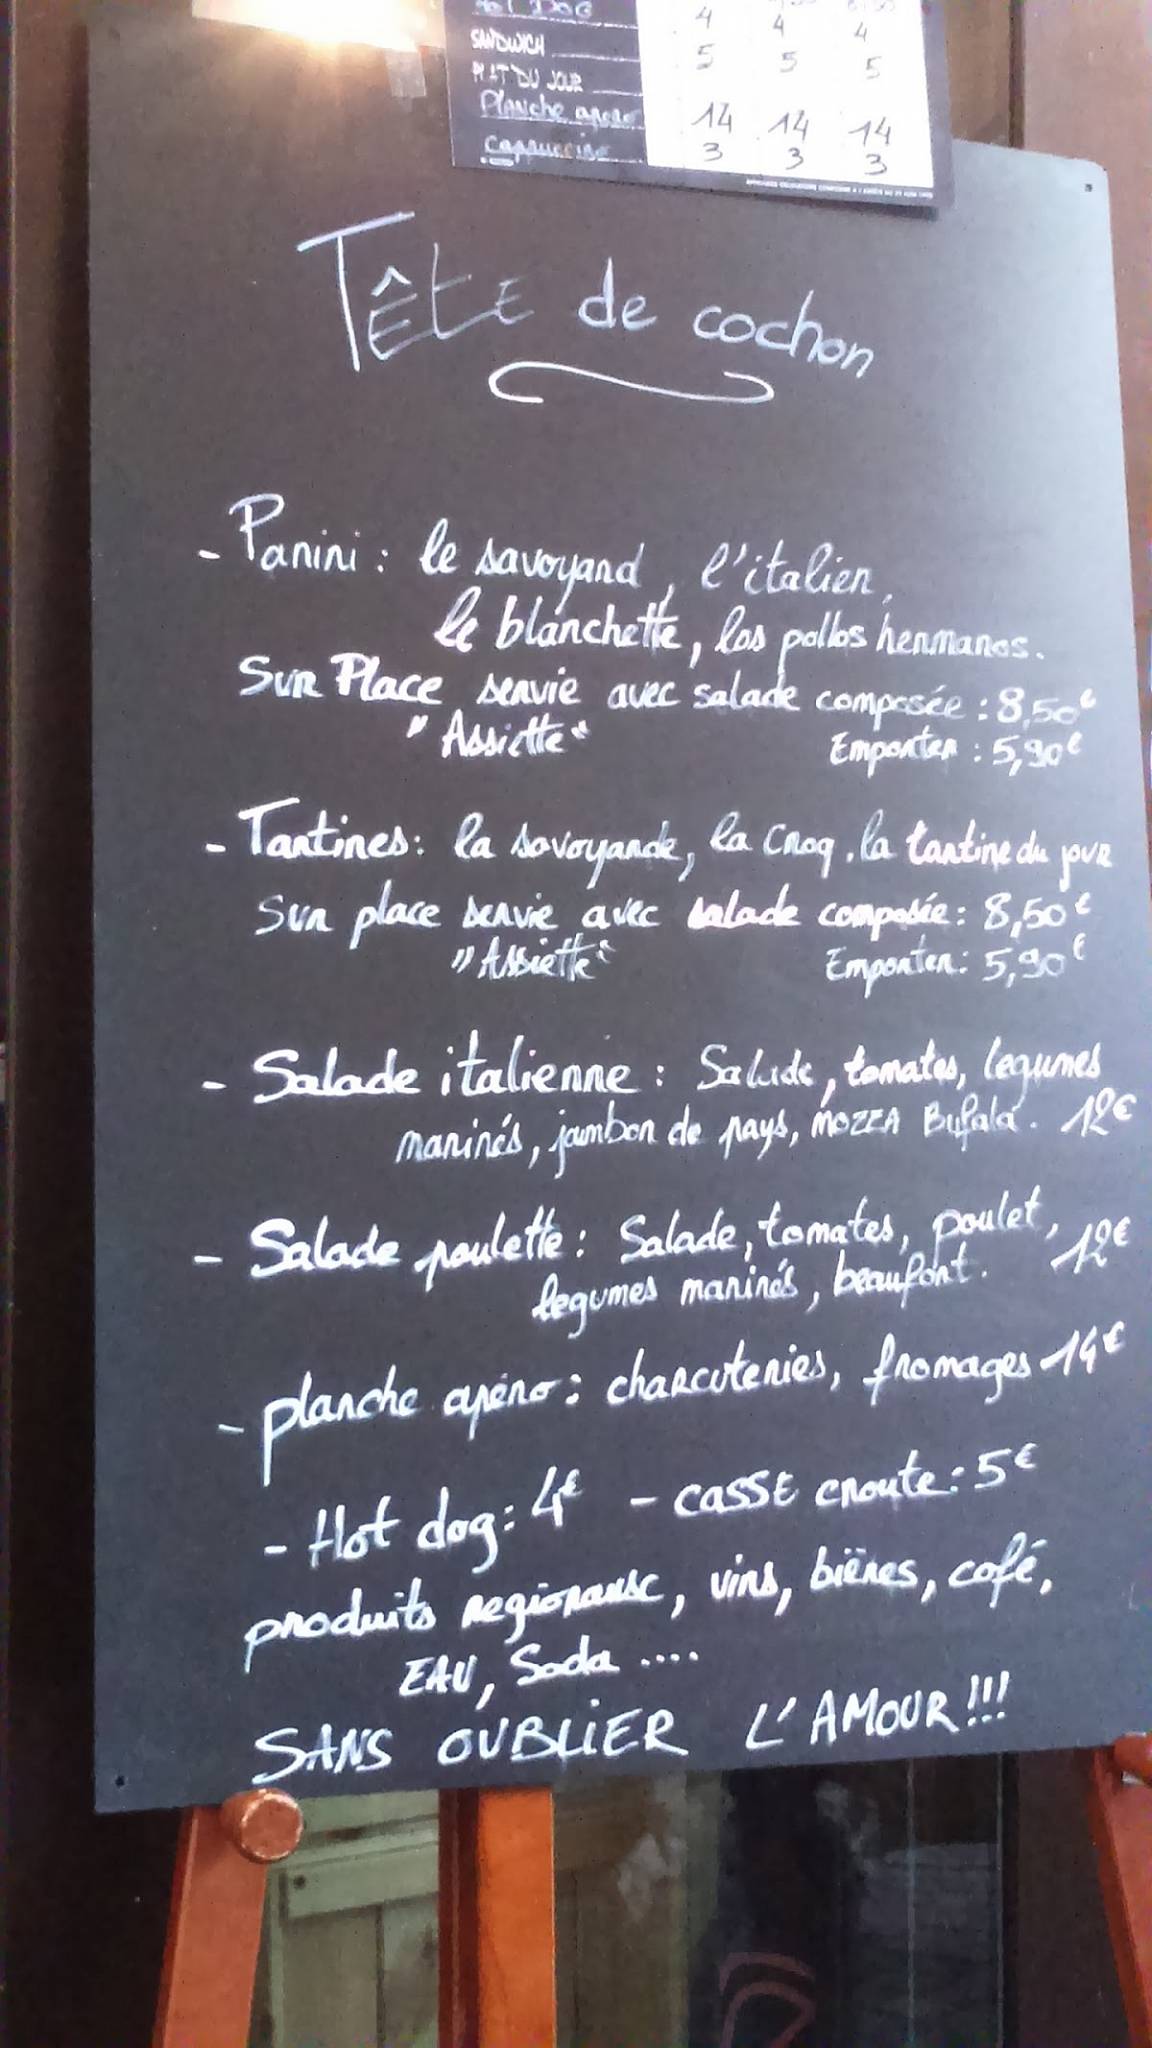 SANDWICH 4 4 4
PLAT DU JOUR 5 5 5
Planche apero 14 14 14
Cappuccino 3 3 3
Tête de cochon
- Panini : le savoyard, l'italien,
le blanchette, los pollos hermanos.
Sur Place servie avec salade composée : 8,50€
"Assiette" Emporter : 5,90€
- Tartines : la savoyarde, la Croq, la tartine du jour
Sur place servie avec salade composée : 8,50€
"Assiette" Emporter : 5,90€
- Salade italienne : Salade, tomates, legumes
marinés, jambon de pays, mozza Bufala. 12€
- Salade poulette : Salade, tomates, poulet, 12€
legumes marinés, beaufort.
- planche apéro : charcuteries, fromages 14€
- Hot dog : 4€ - casse croute : 5€
produits regionaux, vins, bières, café,
EAU, Soda ....
SANS OUBLIER L'AMOUR !!!